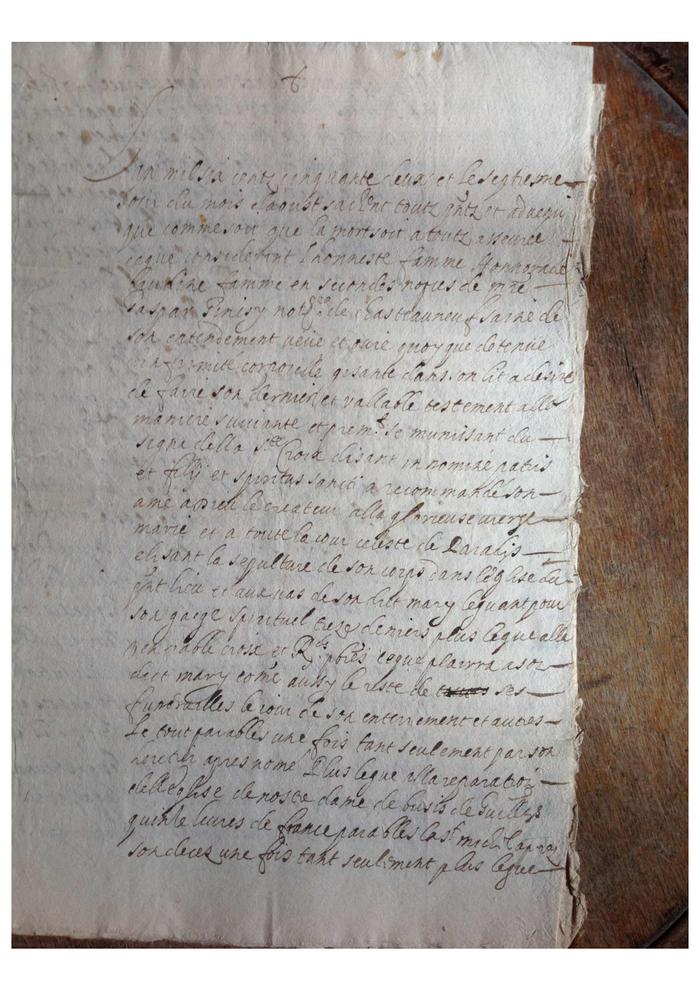 L'an mil six centz cinquante deux et le septiesme
jour du mois d'aoust sachent toutz p̃ntz et advenir
que comme soit que la mort soit a toutz asseuree
ceque considerant l'honneste famme Honnorade
famme en secondes nopces de mre
gaspar not.re de Chasteauneuf sarne de
son entendement veue et ouie quoyque detenue
infirmite corporelle gisante dans son lit a desire
de faire son dernier et vallable testement alla
maniere suivante et prem.t se munissant du
signe della Ste Croix disant in nomine patris
et filij et spiritus sancti a recommandé son
ame a Dieu le createur alla glorieuse vierge
marie et a toute la cour celeste de Paradis
elisant la sepulture de son corps dans l'eglise du
p̃nt lieu et aux vas de son dict mary leguant pour
son gaige spirituel treze deniers plus legue alla
venerable croix et R.ds pbres ceque plairra a son
dict mary come aussy le reste de ses
funerailles le jour de son enterrement et autres
Le tout paiables une fois tant seulement par son
heretier apres nomé Plus legue alla reparation
dell Eglise de nostre dame de
quinze livres de france paiables a St michel apres
son deces une fois tant seulement plus legue